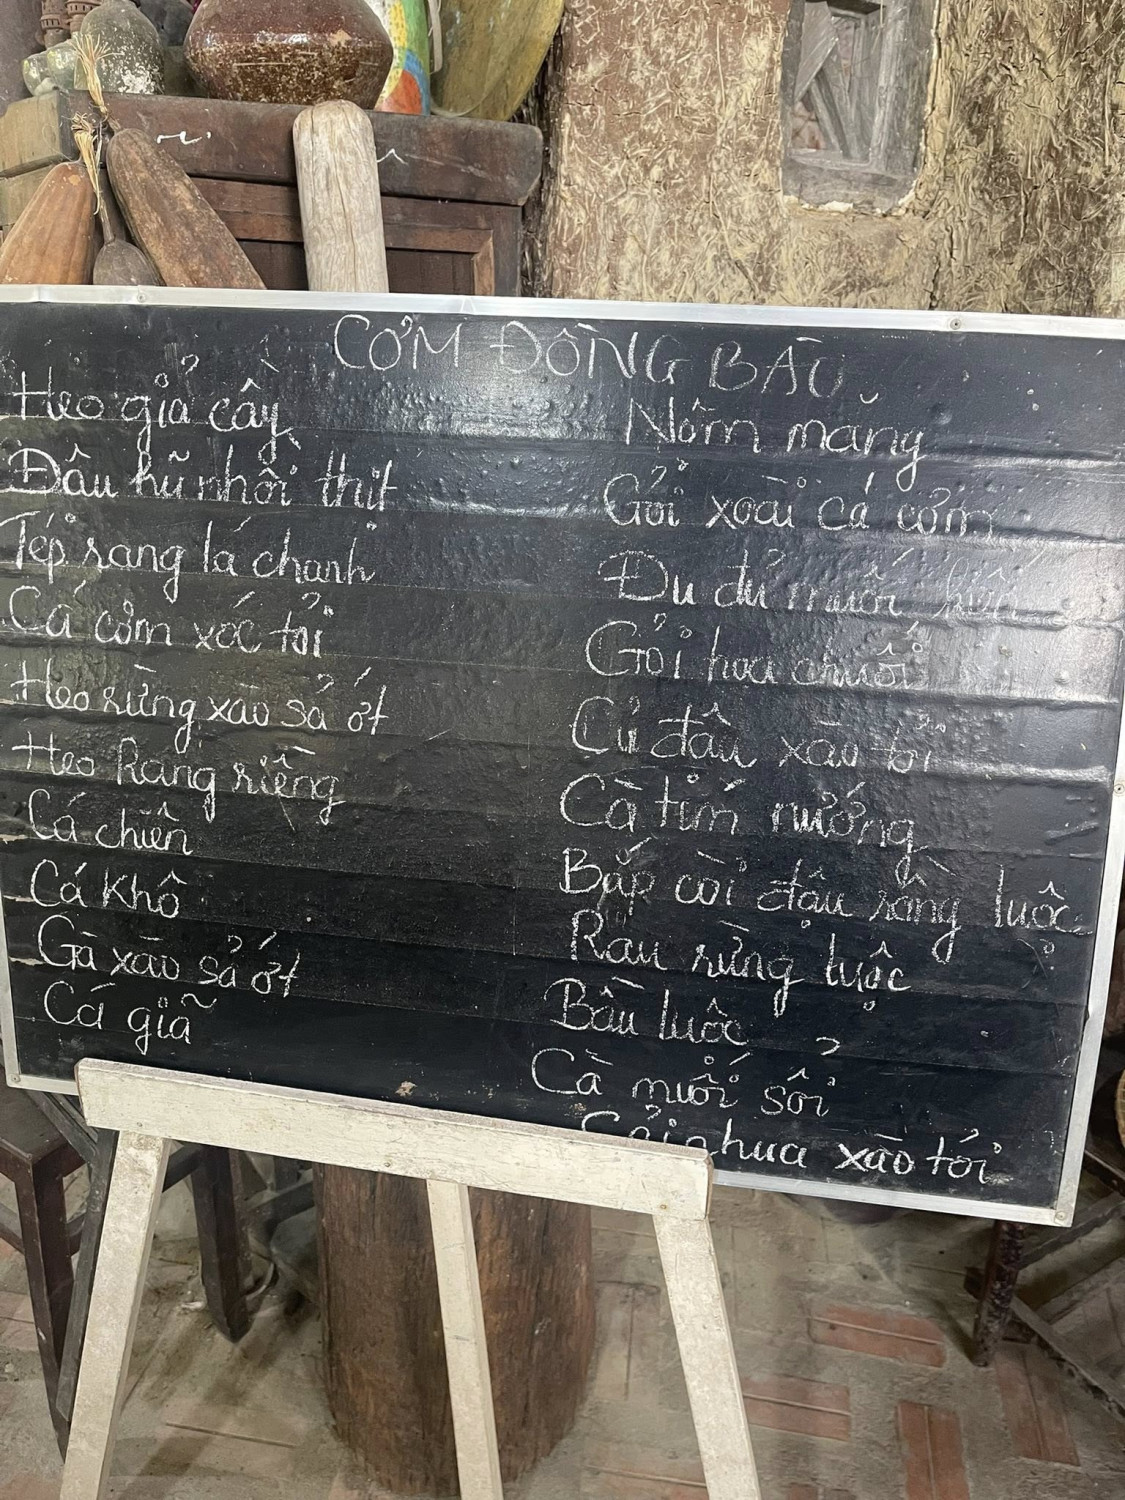 CƠM ĐỒNG BÀU
Heo giả cầy
Đâu hũ nhồi thịt
Tép rang lá chanh
Cá cơm xóc tỏi
Heo rừng xào sả ớt
Heo Rang riềng
Cá chiên
Cá Khô
Gà xào sả ớt
Cá giã
Nộm măng
Gỏi xoài cá cơm
Đu đủ muối
Gỏi hoa chuối
Củ đậu xào tỏi
Cà tím nướng
Bắp còi đậu rồng luộc
Rau rừng luộc
Bầu luộc
Cà muối sổi
nhưa xào tỏi